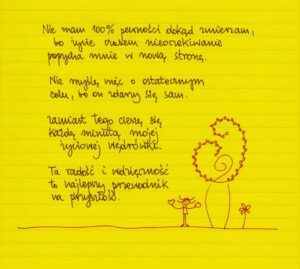 Nie mam 100% pewności dokąd zmierzam,
bo życie czasem nieoczekiwanie
popycha mnie w nową stronę.
Nie myślę więc o ostatecznym
celu, bo on zdarzy się sam.
Zamiast tego cieszę się
każdą minutą mojej
życiowej wędrówki.
Ta radość i wdzięczność
to najlepszy przewodnik
na przyszłość.